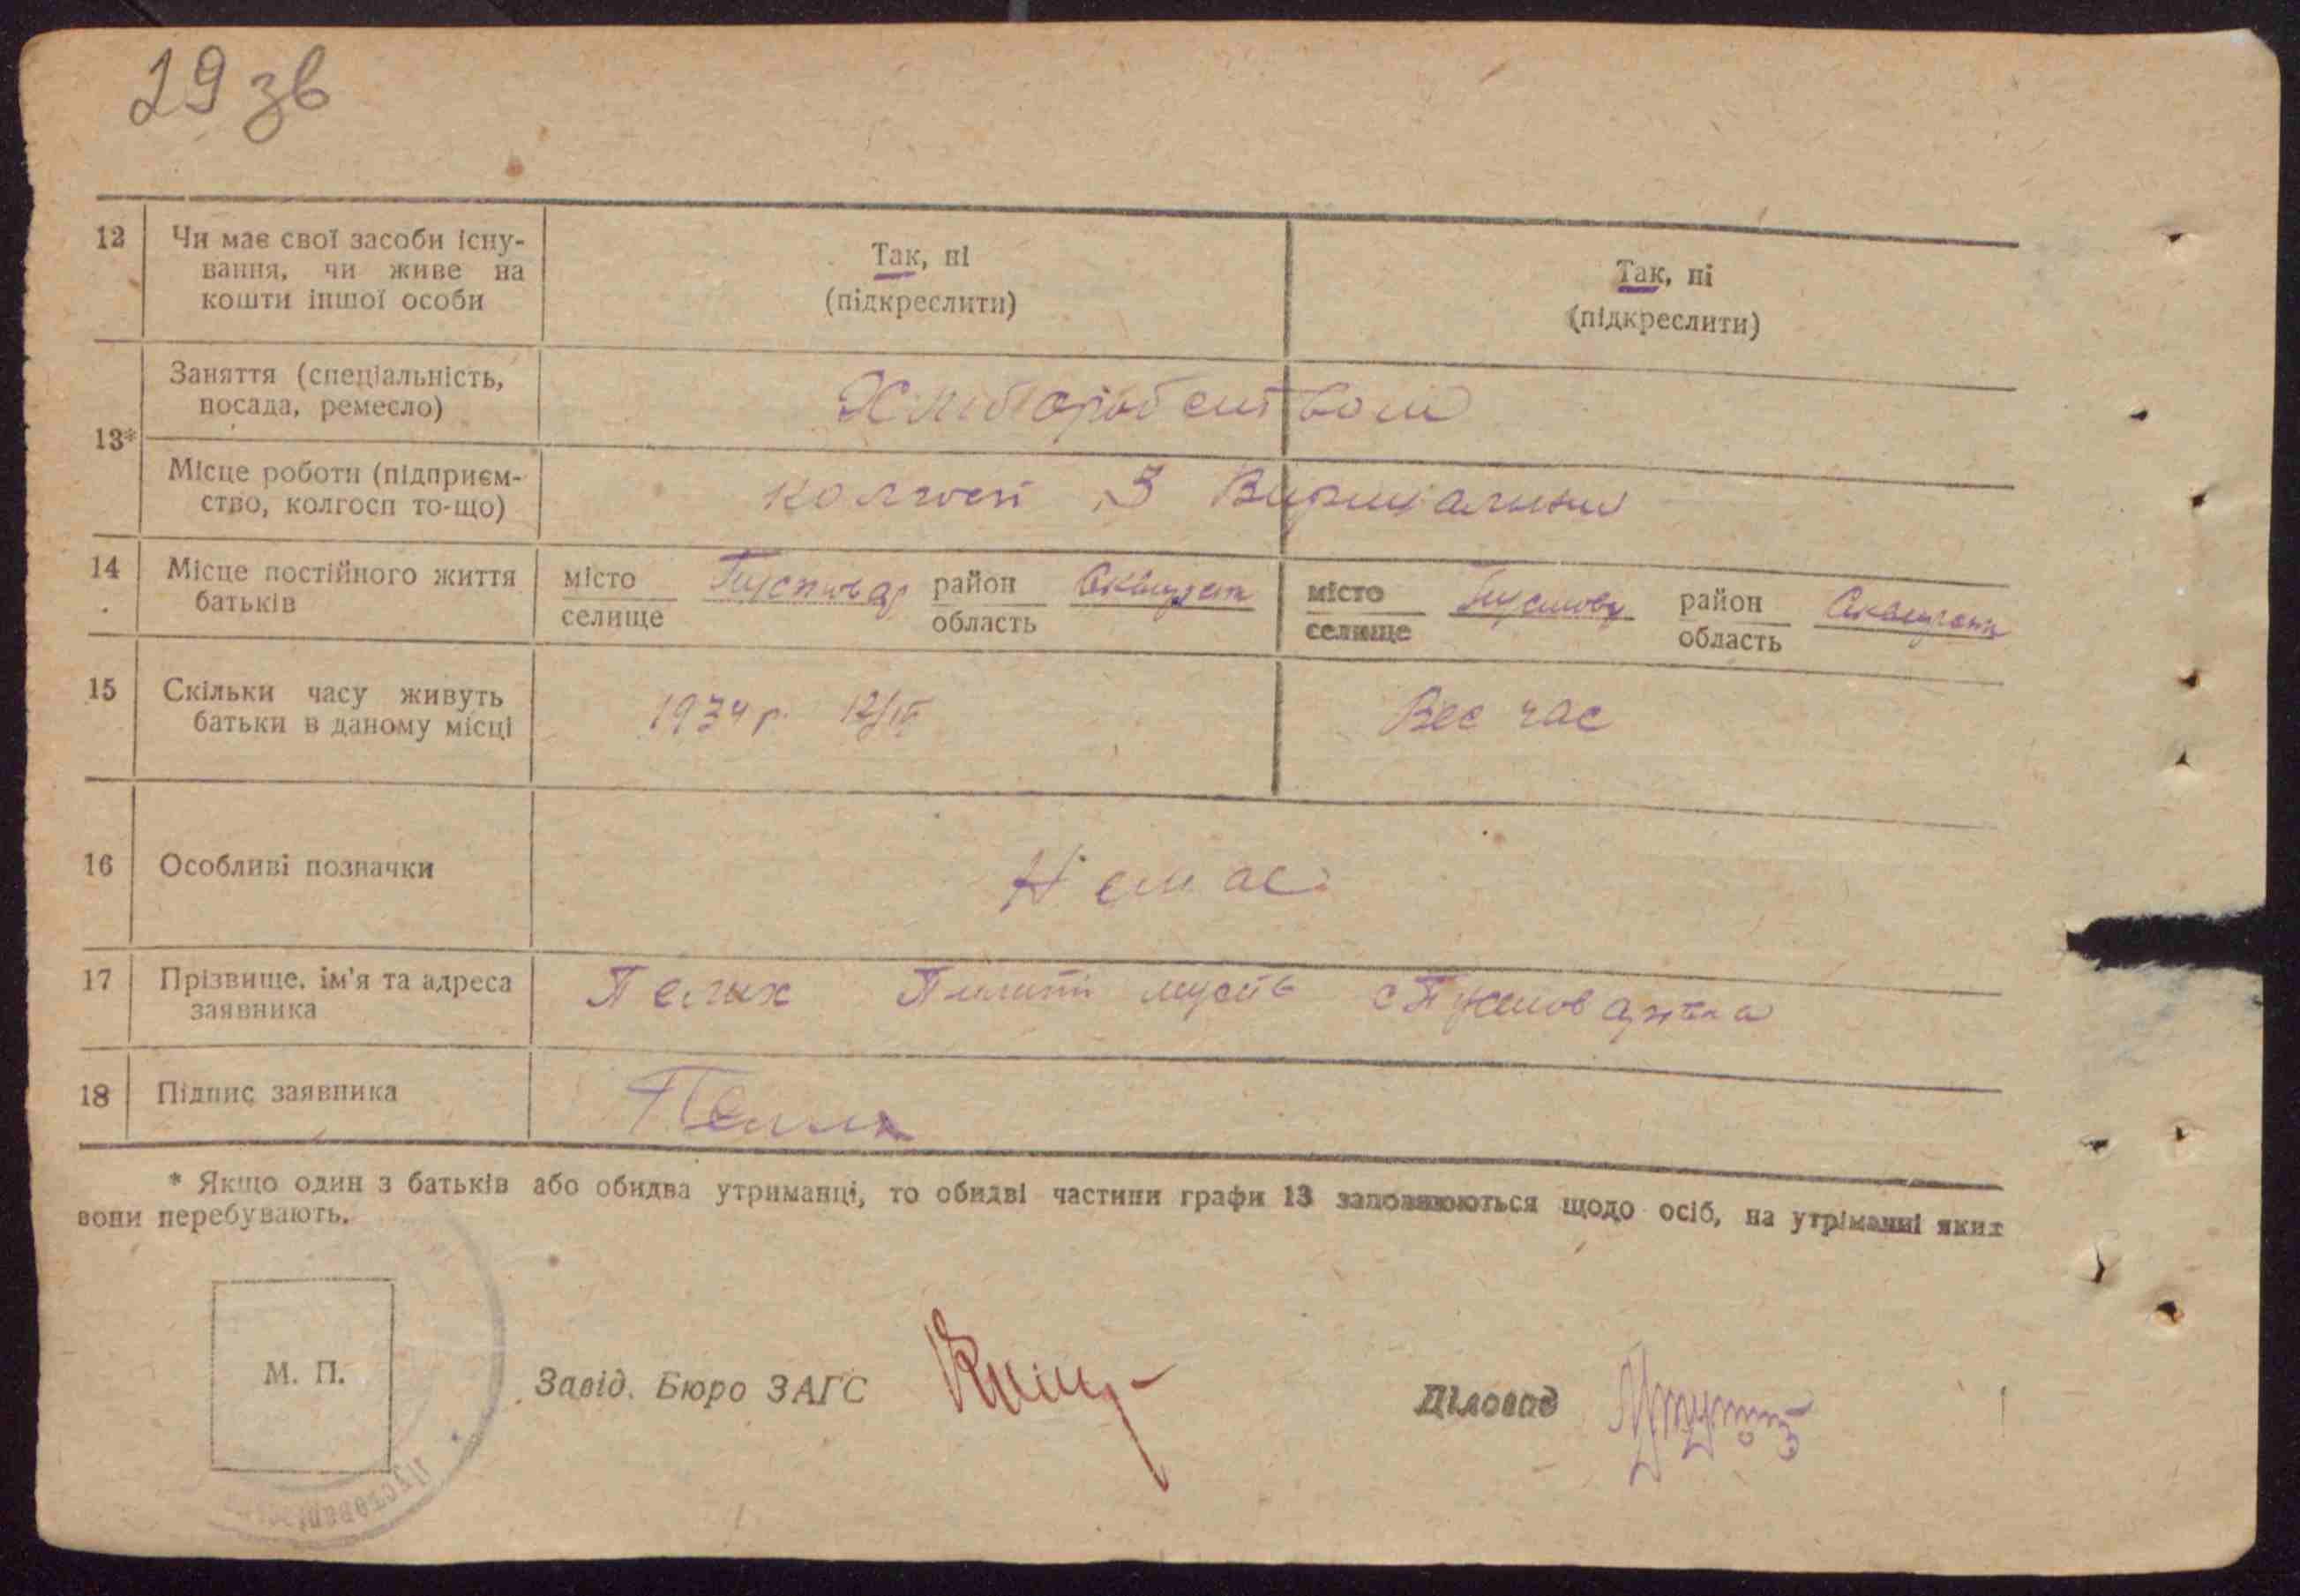 29 зв
12 Чи має свої засоби існу-
вання, чи живе на
кошти іншої особи
Так, ні
(підкреслити)
Так, ні
(підкреслити)
13*
Заняття (спеціальність,
посада, ремесло)
Хліборобством
Місце роботи (підприєм-
ство, колгосп то-що)
колгосп 3 Вирішальний
14 Місце постійного життя
батьків
місто
селище
район
область
місто
селище
район
область
15 Скільки часу живуть
батьки в даному місці
1934 р.
Вес час
16 Особливі позначки
Немає
17 Прізвище, ім'я та адреса
заявника
Пелих Пилип
18 Підпис заявника
Пелих
* Якщо один з батьків або обидва утриманці, то обидві частини графи 13 заповнюються щодо осіб, на утріманні яких
вони перебувають.
М. П.
Завід. Бюро ЗАГС
Діловод